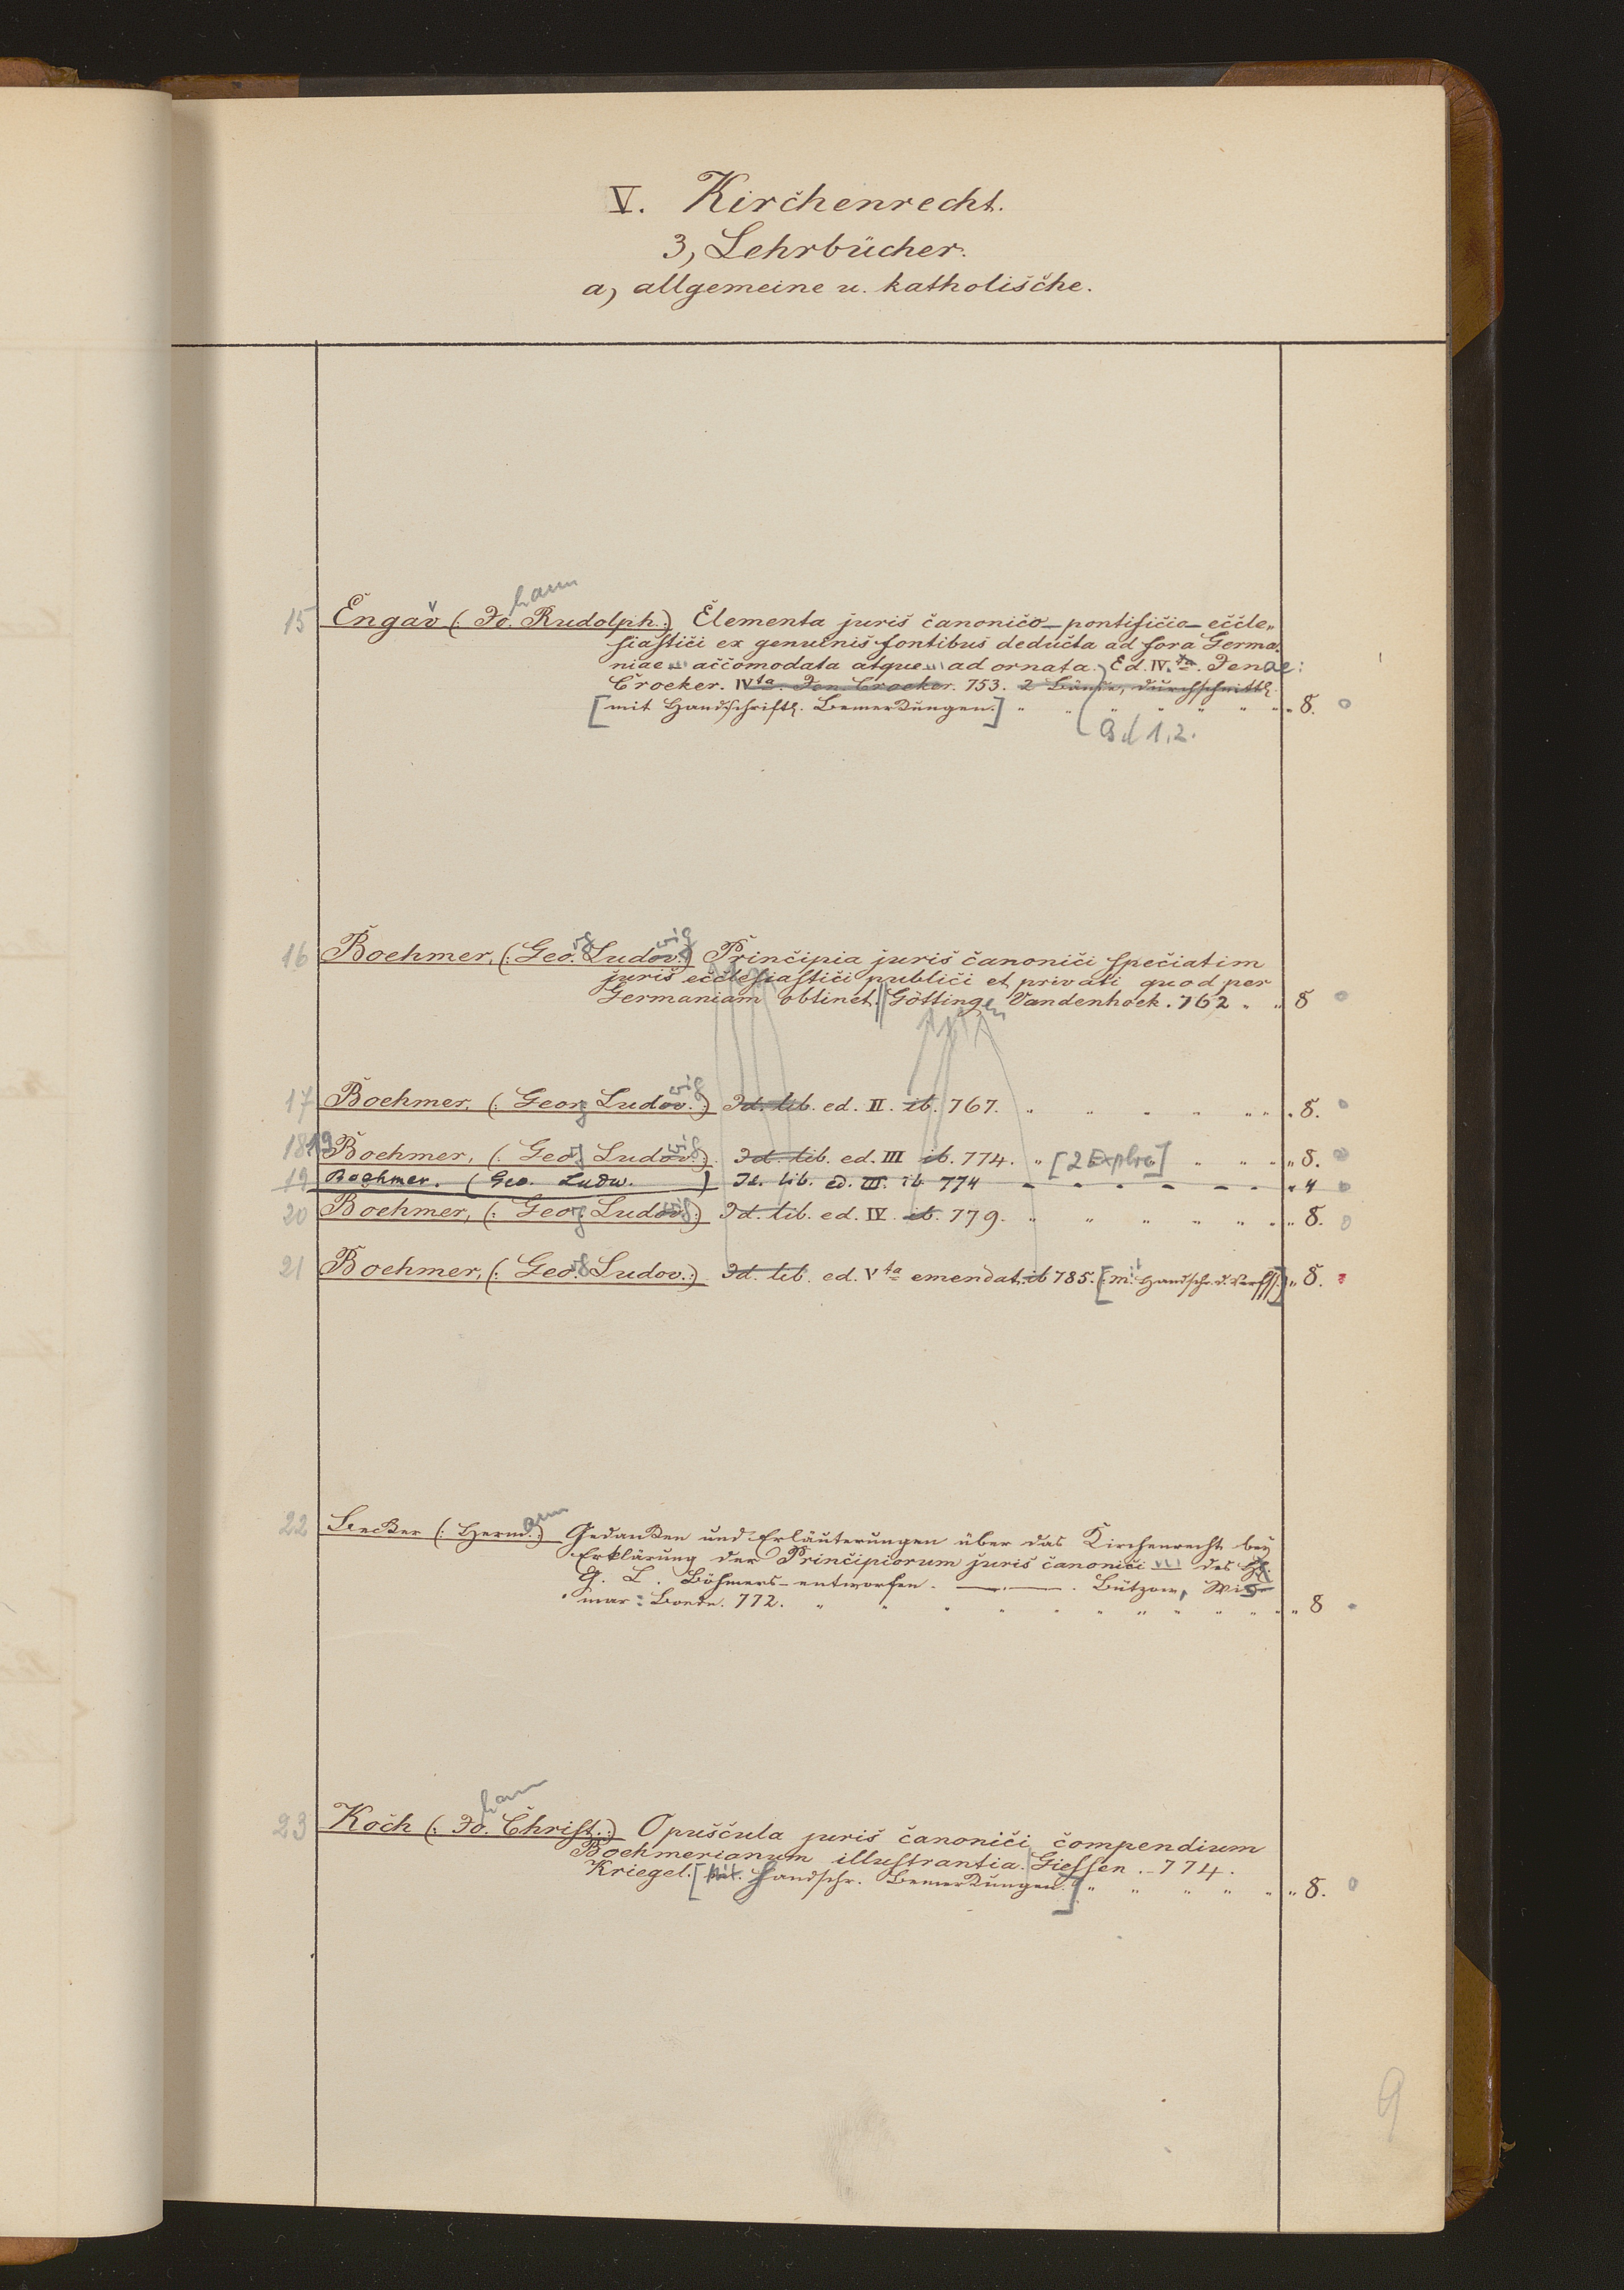 V. Kirchenrecht.
3, Lehrbücher.
a, allgemeine u. katholische.
15 Engav (: Jo. hann Rudolph.) Elementa juris canonico- pontificio- eccle„
siastici ex genuinis fontibus deducta ad fora Germa„
niae accomodata atque ad ornata. Ed. IV.ta. Jenae:
Croeker. IVta. Jen. Croeker. 753. 2 Bände, durchschnittl.
[mit Handschriftl. Bemerkungen.] „ 8.
Bd 1.2.
16 Boehmer, (: Georg. Ludov. wig) Principia juris canonici speciatim
juris ecclesiastici publici et privati quod per
Germaniam obtinet. Göttingen Vandenhoek. 762 „ „ 8
17 Boehmer, (: Georg Ludov. wig) Id. lib. ed. II. ib. 767. „ 8.
18 19 Boehmer, (: Georg Ludov. wig) Id. lib. ed. III ib. 774. „ [2 Explre] „ 8.
19 Boehmer. (Geo. Ludw. ) Id. lib. ed. III. ib 774 „ 4
20 Boehmer, (: Georg Ludov. wig) Id. lib. ed. IV. ib. 779. „ 8.
21 Boehmer, (: Georg. Ludov.:) Id. lib. ed. Vta emendat. ib 785. [mit Handschr. d. Verfss.] „ 8.
22 Becker (: Herm. ann) Gedanken und Erläuterungen über das Kirchenrecht bey
Erklärung der Principiorum juris canonici des H.
G. L. Böhmers entworfen. —.—. Bützow, Wis-
mar: Boedn. 772. „ 8
23 Koch (: Jo. hann Christ.:) Opuscula juris canonici compendium
Boehmerianum illustrantia. Giessen. 774.
Kriegel. [Mit. Handschr. Bemerkungen.] „ 8.
9